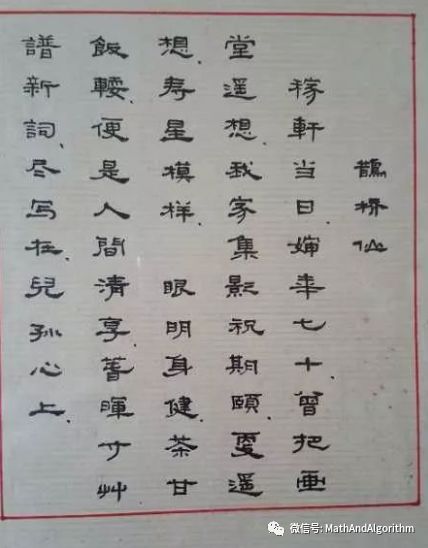 鵲桥仙
稼軒当日、婶年七十、曾把画
堂遥想、我家集影祝期頤、更遥
想、寿星模样、　眼明身健、茶甘
飯輭、便是人間清享、萱暉寸艸
譜新詞、尽写在兒孙心上、
微信号: MathAndAlgorithm